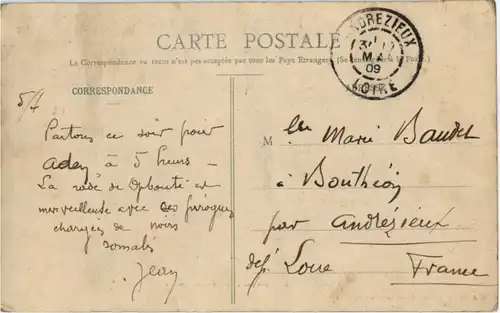 CARTE POSTALE
La Correspondance au recto n'est pas acceptée par tous les Pays Etrangers (Se renseigner à la Poste).
CORRESPONDANCE
ANDREZIEUX
31
MAI
09
LOIRE
5/4
Partons ce soir pour
Aden à 5 heures -
La rade de Djibouti est
merveilleuse avec ses pirogues
chargées de noirs
somalis
Jean
Mlle Marie Baudet
à Bouthéon
par Andrézieux
dép. Loire
France